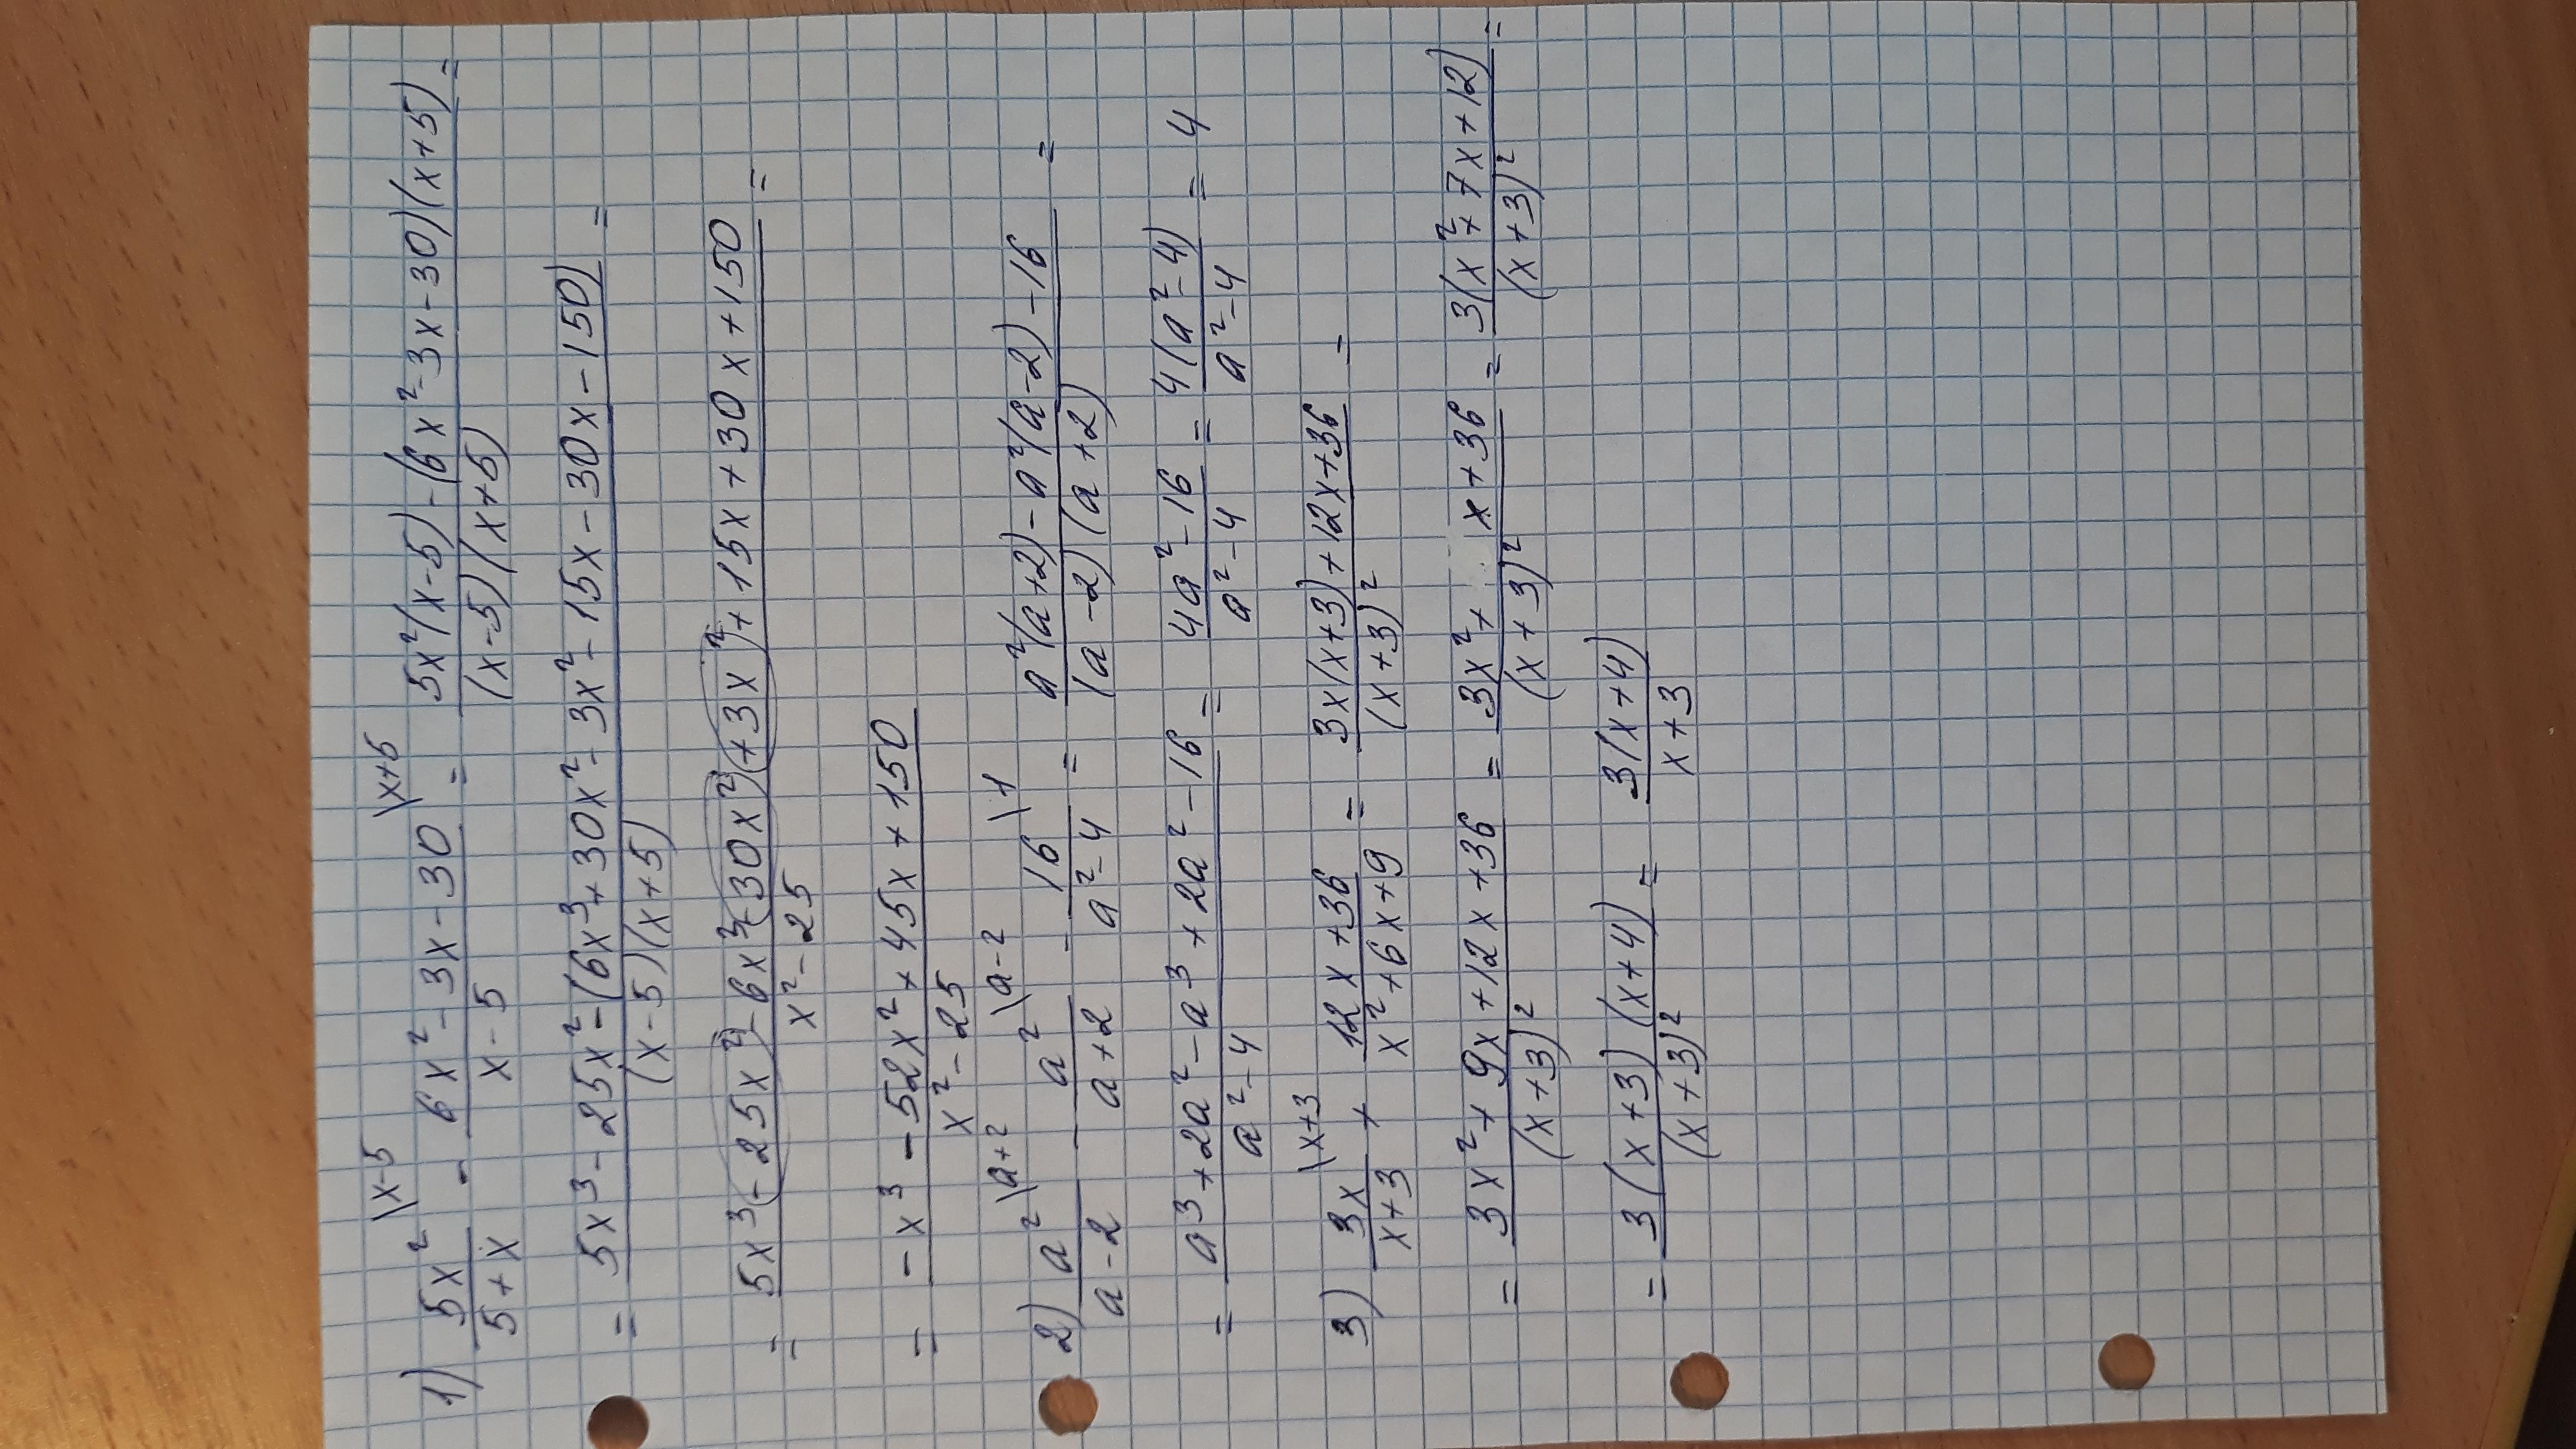 1) 5x²/(5+x) \x-5 - (6x²-3x-30)/(x-5) \x+5 = (5x²(x-5)-(6x²-3x-30)(x+5))/((x-5)(x+5)) =
= (5x³-25x²-(6x³+30x²-3x²-15x-30x-150))/((x-5)(x+5)) =
= (5x³-25x²-6x³-30x²+3x²+15x+30x+150)/(x²-25) =
= (-x³-52x²+45x+150)/(x²-25)
2) a²/(a-2) \a+2 - a²/(a+2) \a-2 - 16/(a²-4) \1 = (a²(a+2)-a²(a-2)-16)/((a-2)(a+2)) =
= (a³+2a²-a³+2a²-16)/(a²-4) = (4a²-16)/(a²-4) = 4(a²-4)/(a²-4) = 4
3) 3x/(x+3) \x+3 + (12x+36)/(x²+6x+9) = (3x(x+3)+12x+36)/(x+3)² -
= (3x²+9x+12x+36)/(x+3)² = (3x²+ x+36)/(x+3)² = 3(x²+7x+12)/(x+3)² =
= 3(x+3)(x+4)/(x+3)² = 3(x+4)/(x+3)